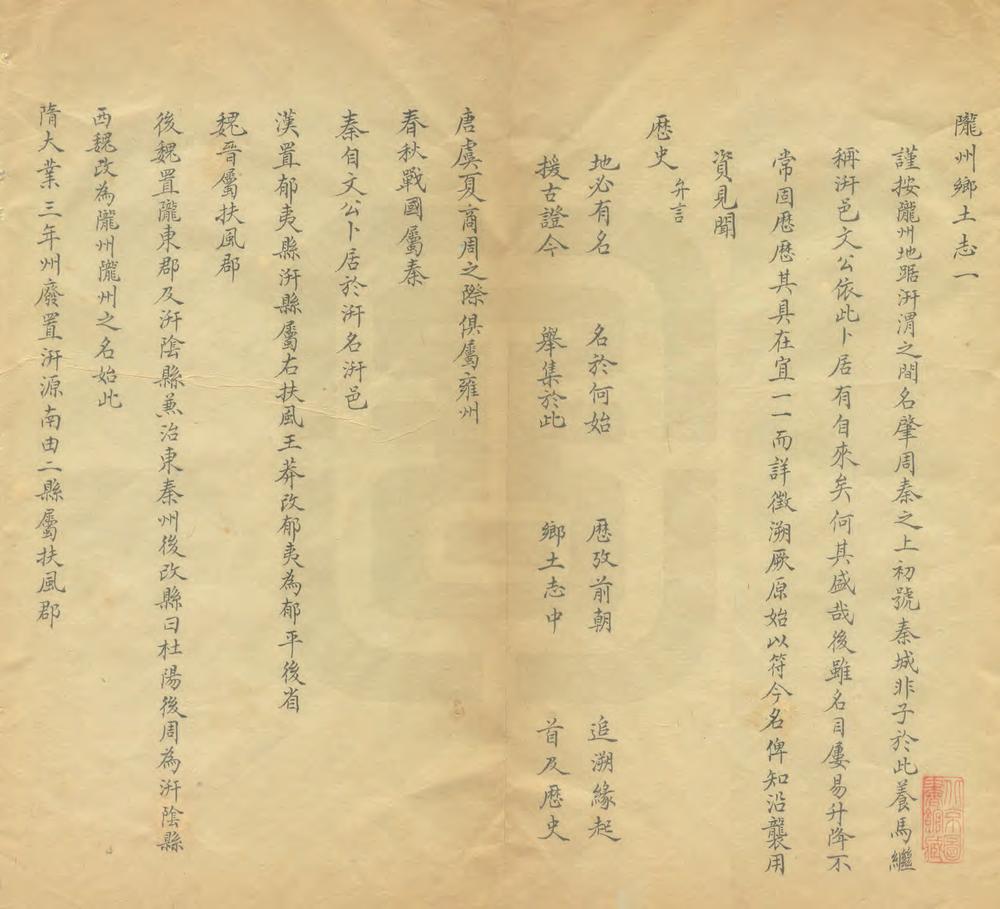 隴州鄉土志一
謹按隴州地踞汧渭之間名肇周秦之上初號秦城非子於此養馬繼
稱汧邑文公依此卜居有自來矣何其盛哉後雖名目屢易升降不
常固歷歷其具在宜一一而詳徵溯厥原始以符今名俾知沿襲用
資見聞
歷史 弁言
地必有名 名於何始 歷攷前朝 追溯緣起
援古證今 舉集於此 鄉土志中 首及歷史
唐虞夏商周之際俱屬雍州
春秋戰國屬秦
秦自文公卜居於汧名汧邑
漢置郁夷縣汧縣屬右扶風王莽改郁夷為郁平後省
魏晉屬扶風郡
後魏置隴東郡及汧陰縣兼治東秦州後改縣曰杜陽後周為汧陰縣
西魏改為隴州隴州之名始此
隋大業三年州廢置汧源南由二縣屬扶風郡
北京圖
書館藏